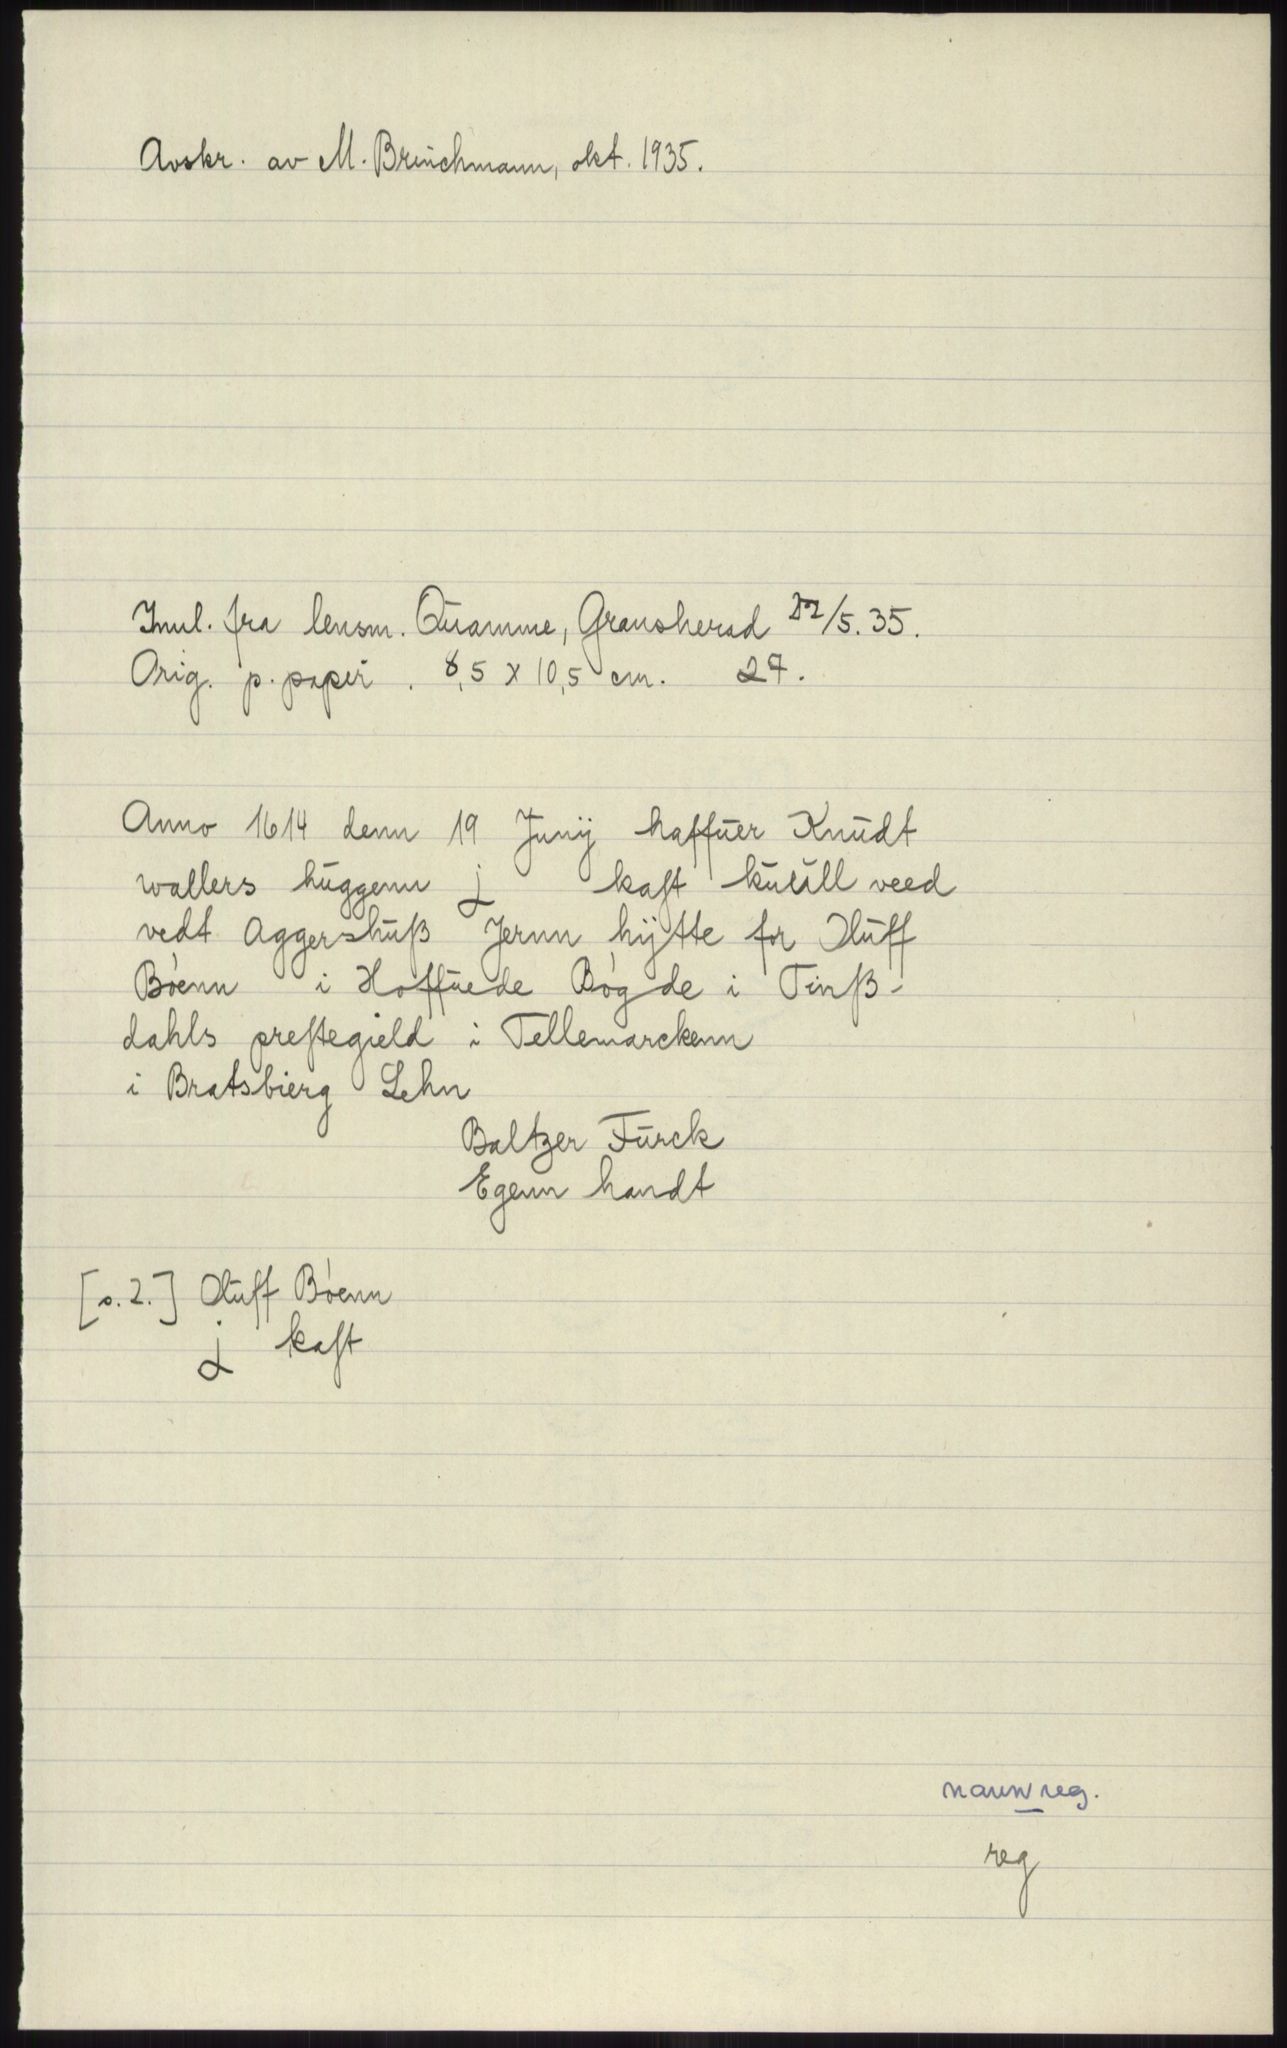 Avskr. av M. Brinchmann, okt. 1935.
Innl. fra lensm. Quamme, Gransherad 22/5. 35.
Orig. p. papir. 8,5 x 10,5 cm. 27.
Anno 1614 denn 19 Junij haffuer Knudt
wallers huggenn j kast kulåll veed
vedt Aggershuß Jernn hÿtte for Oluff
Bóenn i Hoffuede Bógde i Tinß-
dahls prestegield i Tellemarckenn
i Bratsbierg Lehn
Baltzer Fúrck
Egenn handt
[s. 2.] Oluff Bóenn
j kast
navnreg.
reg